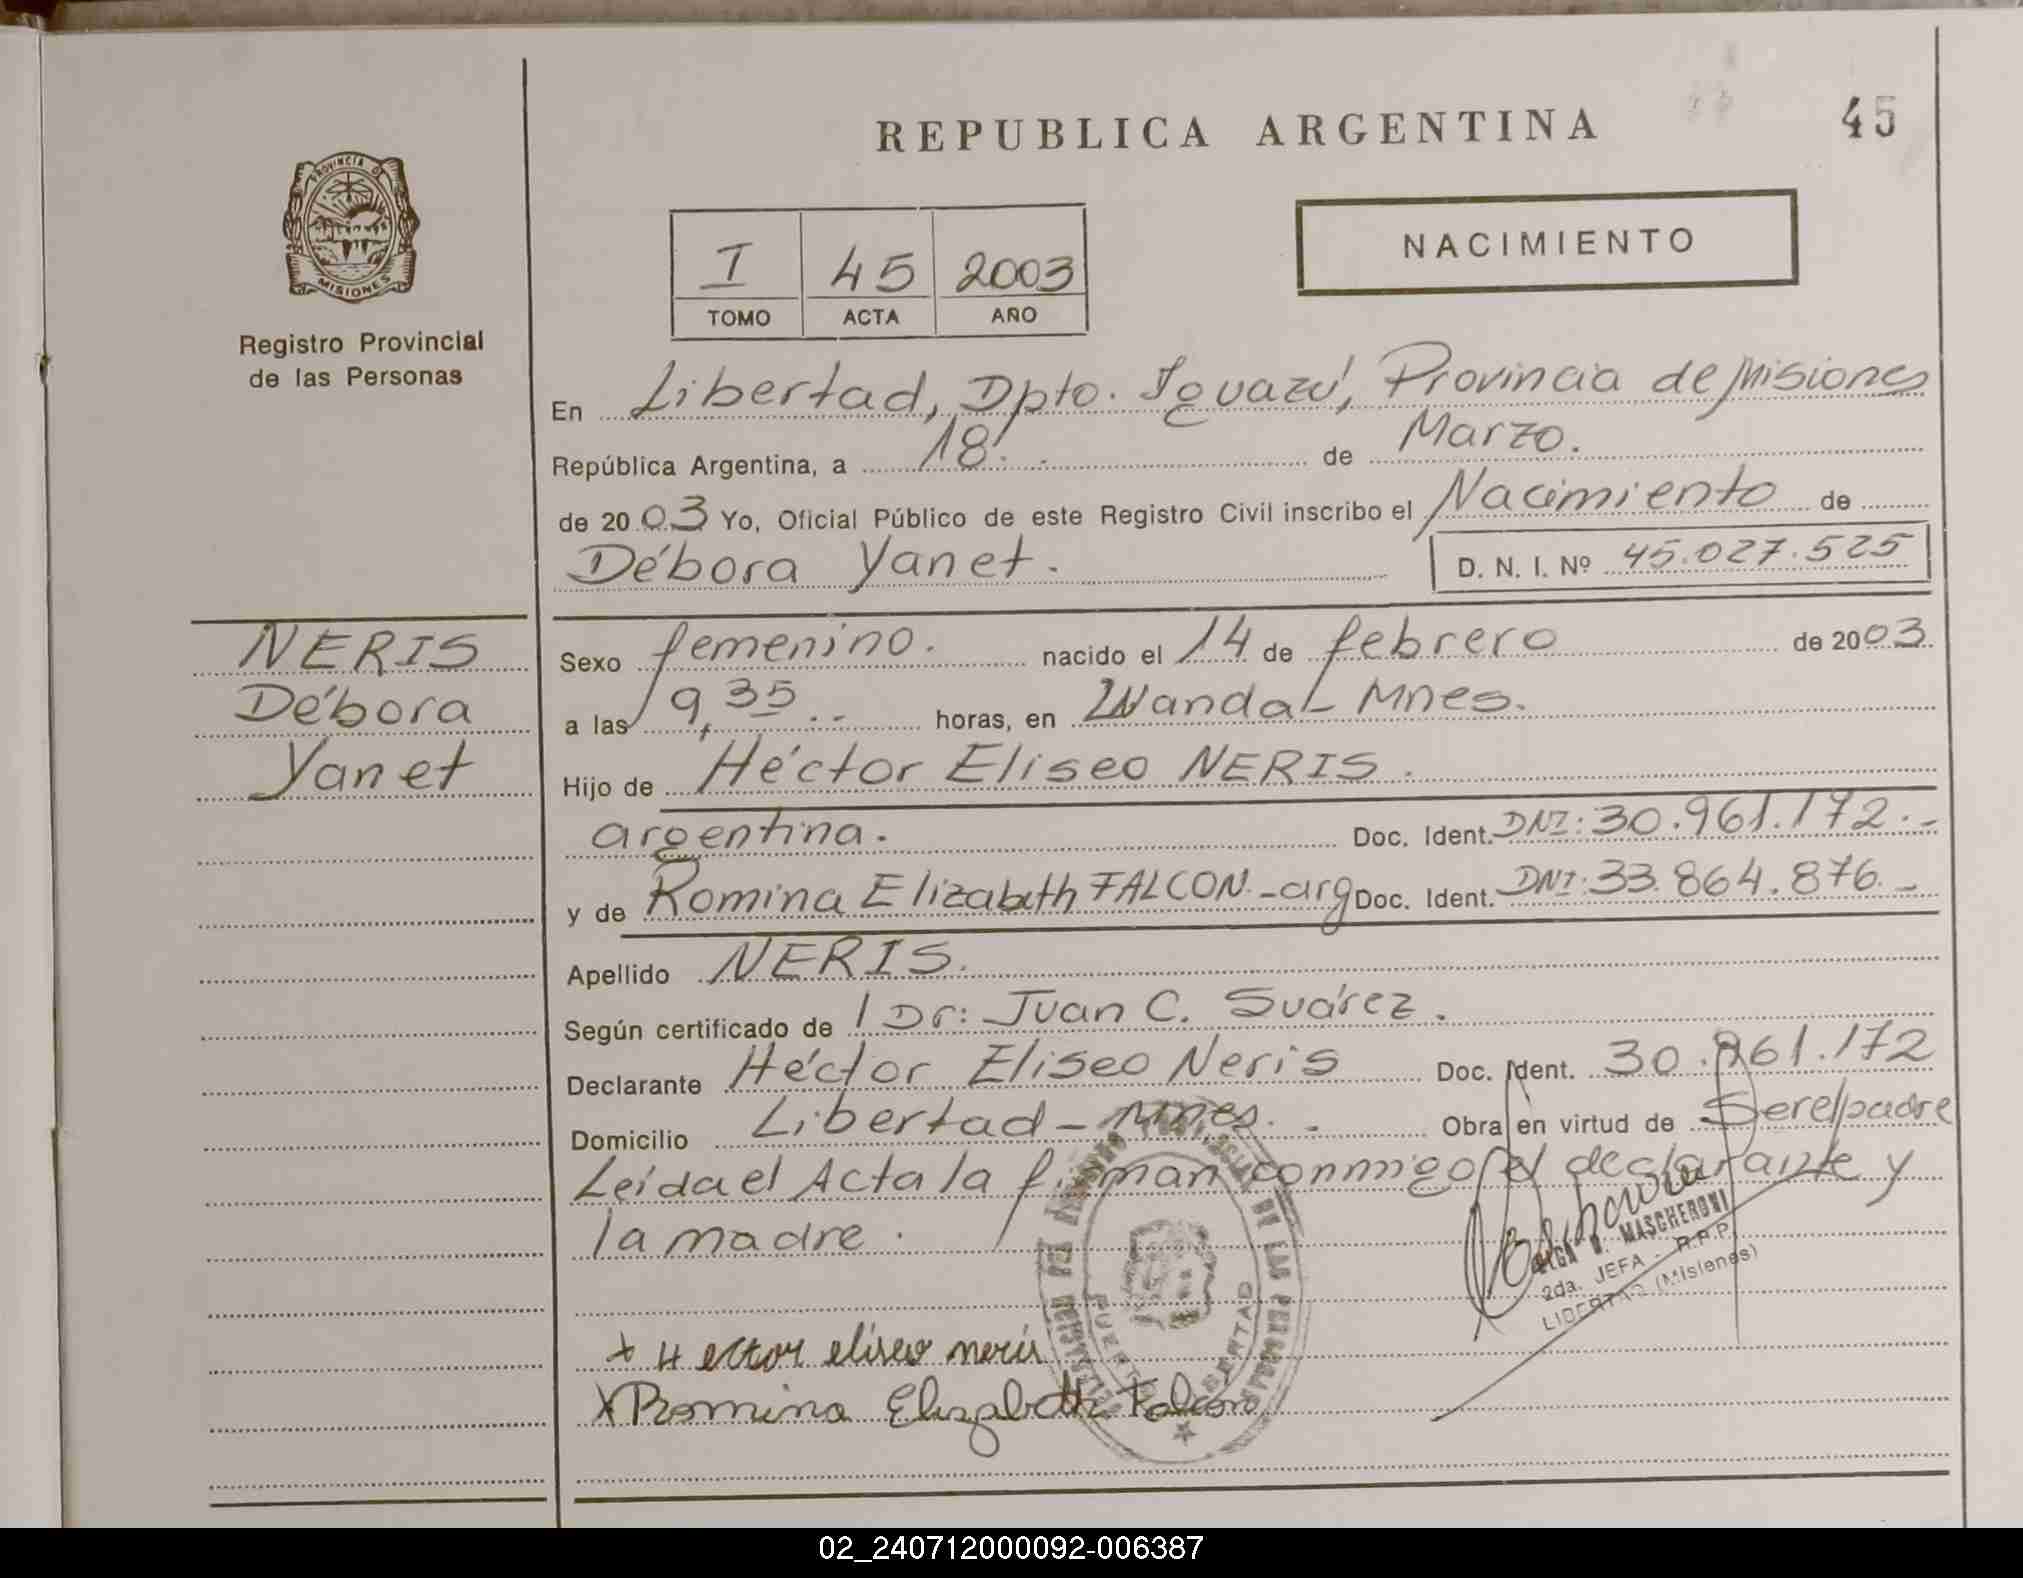 REPUBLICA ARGENTINA
45
PROVINCIA DE
MISIONES
Registro Provincial
de las Personas
I 45 2003
TOMO ACTA AÑO
NACIMIENTO
En Libertad, Dpto. Iguazú, Provincia de Misiones
República Argentina, a 18. de Marzo.
de 2003 Yo, Oficial Público de este Registro Civil inscribo el Nacimiento de
Débora Yanet. D. N. I. Nº 45.027.525
NERIS
Débora
Yanet
Sexo femenino. nacido el 14 de febrero de 2003.
a las 9,35 horas, en Wanda - Mnes.
Hijo de Héctor Eliseo NERIS.
argentina. Doc. Ident. DNI: 30.961.172.-
y de Romina Elizabeth FALCON.-arg Doc. Ident. DNI: 33.864.876.-
Apellido NERIS.
Según certificado de Dr: Juan C. Suárez.
Declarante Héctor Eliseo Neris Doc. Ident. 30.961.172
Domicilio Libertad - Mnes. Obra en virtud de Ser el padre
Leída el Acta la firman conmigo el declarante y
la madre.
MASCHERONI
2da. JEFA - R.P.P.
LIBERTAD (Misiones)
DE LAS PERSONAS
PUERTO LIBERTAD
x Hector eliseo neris
x Romina Elizabeth Falcon
02_240712000092-006387